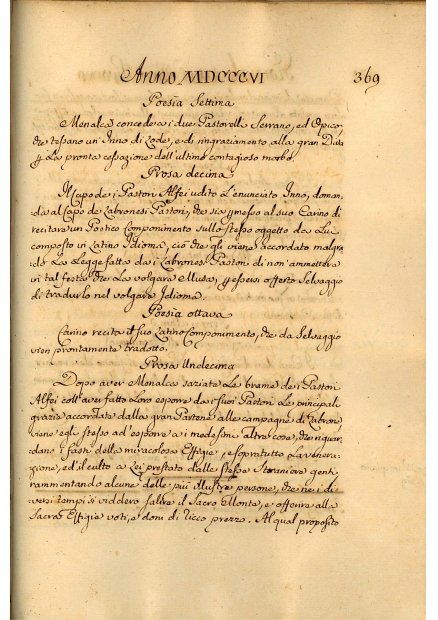 Anno MDCCCVI 369
Poesia Settima
Menalca concede a i due Pastorelli Serrano, ed Opico,
che tessano un' Inno di Lode, e di ringraziamento alla gran Diva
p la pronta cessazione dell'ultimo contagioso morbo.
Prosa decima
Il Capo de i Pastori Alfei udito l'enunciato Inno, doman-
da al Capo de Zabronesi Pastori, che sia pmesso al suo Carino di
recitare un Poetico Componimento sullo stesso oggetto da Lui
composto in Latino Idioma, ciò che gli viene accordato malgra-
do la Legge fatta da i Zabronesi Pastori di non' ammettere
in tal festa che la volgare Musa, p essersi offerto Selvaggio
di tradurlo nel volgare Idioma.
Poesia ottava
Carino recita il suo Latino Componimento, che da Selvaggio
vien prontamente tradotto.
Prosa Undecima
Dopo aver Menalca saziate le brame de i Pastori
Alfei coll' aver fatto Loro esporre da i suoi Pastori le principali
grazie accordate dalla gran Partene alle campagne di Zabron
viene egli stesso ad' esporre a i medesimi altre cose, che riguar-
dano i fasti della miracolosa Effigie, e sopratutto la venera-
zione, ed il culto a Lei prestato dalle stesse Straniere genti,
rammentando alcune delle più illustri persone, che ne i di-
versi tempi si viddero salire il Sacro Monte, e offerire alla
Sacra Effigie voti, e doni di ricco prezzo. Al qual proposito